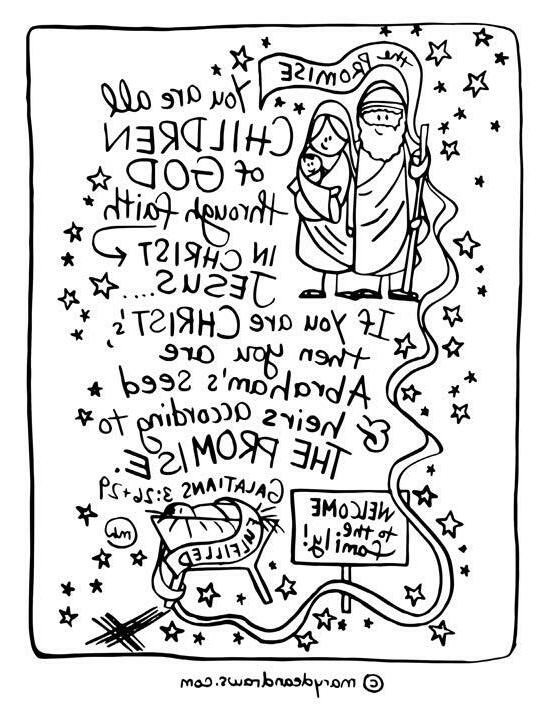 the PROMISE
You are all
CHILDREN
of GOD
through faith
IN CHRIST
JESUS.....
If you are CHRIST's,
then you are
Abraham's Seed
& heirs according to
THE PROMISE.
GALATIANS 3:26+29
FULFILLED
WELCOME
to the
family!
mw
© marydeandraws.com